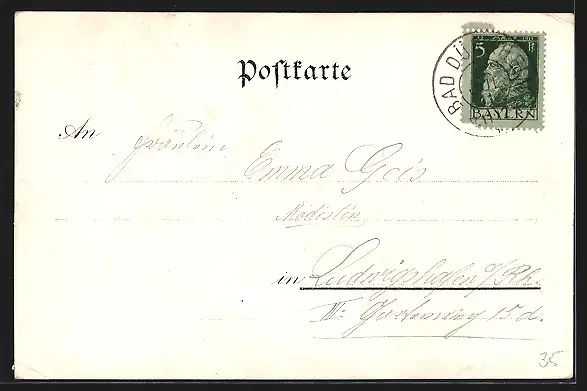 Postkarte
BAD DÜ
5 Pf
BAYERN
An Fräulein Emma Geis
Modistin
in Ludwigshafen a/Rh.
III. Gartenweg 15 d.
35